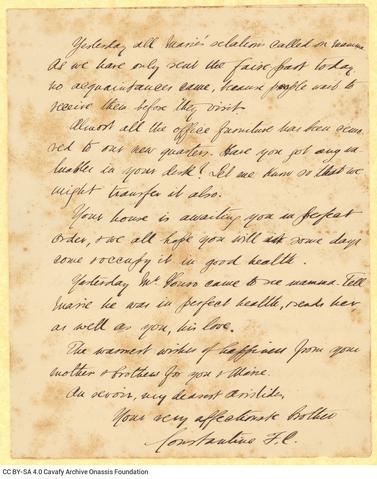 Yesterday all Marie's relations called on mamma.
As we have only sent the faire-part today
no acquaintances came, because people want to
receive them before they visit.
Almost all the office furniture has been remo
ved to our new quarters. Have you got any va
luables in your desk? Let me know so that we
might transfer it also.
Your house is awaiting you in perfect
order, & we all hope you will some days
come & occupy it in good health.
Yesterday Mr came to see mamma. Tell
Marie he was in perfect health, & sends her
as well as you, his love.
The warmest wishes of happiness from your
mother & brothers for you & Marie.
Au revoir, my dearest Aristides,
Your very affectionate Brother
Constantine F. C.
CC BY-SA 4.0 Cavafy Archive Onassis Foundation